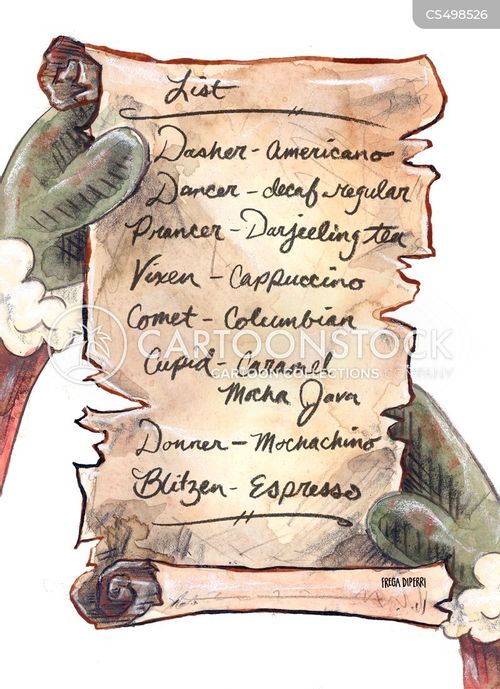 CS498526
List
Dasher - Americano
Dancer - decaf regular
Prancer - Darjeeling tea
Vixen - Cappuccino
Comet - Columbian
CARTOONSTOCK
Cupid - Caramel
CARTOON COLLECTIONS COMPANY
Mocha Java
Donner - Mochachino
Blitzen - Espresso
FREGA DIPERRI